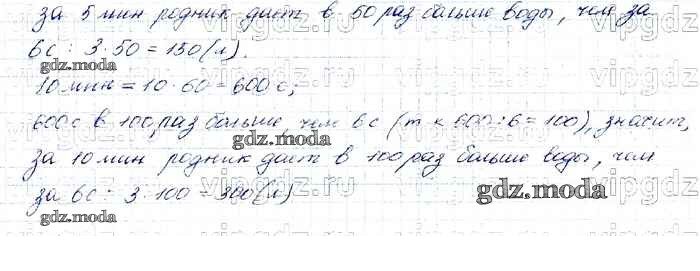 за 5 мин родник дает в 50 раз больше воды, чем за
6с : 3·50 = 150 (л).
10 мин = 10·60 = 600 с;
600с в 100 раз больше, чем 6с (т к 600:6 = 100), значит,
за 10 мин родник дает в 100 раз больше воды, чем
за 6с : 3·100 = 300 (л)
gdz.moda
gdz.moda
gdz.moda
gdz.moda
gdz.moda
vipgdz.ru
vipgdz
vipgdz.ru
vipgdz
vipgdz.ru
vipgdz